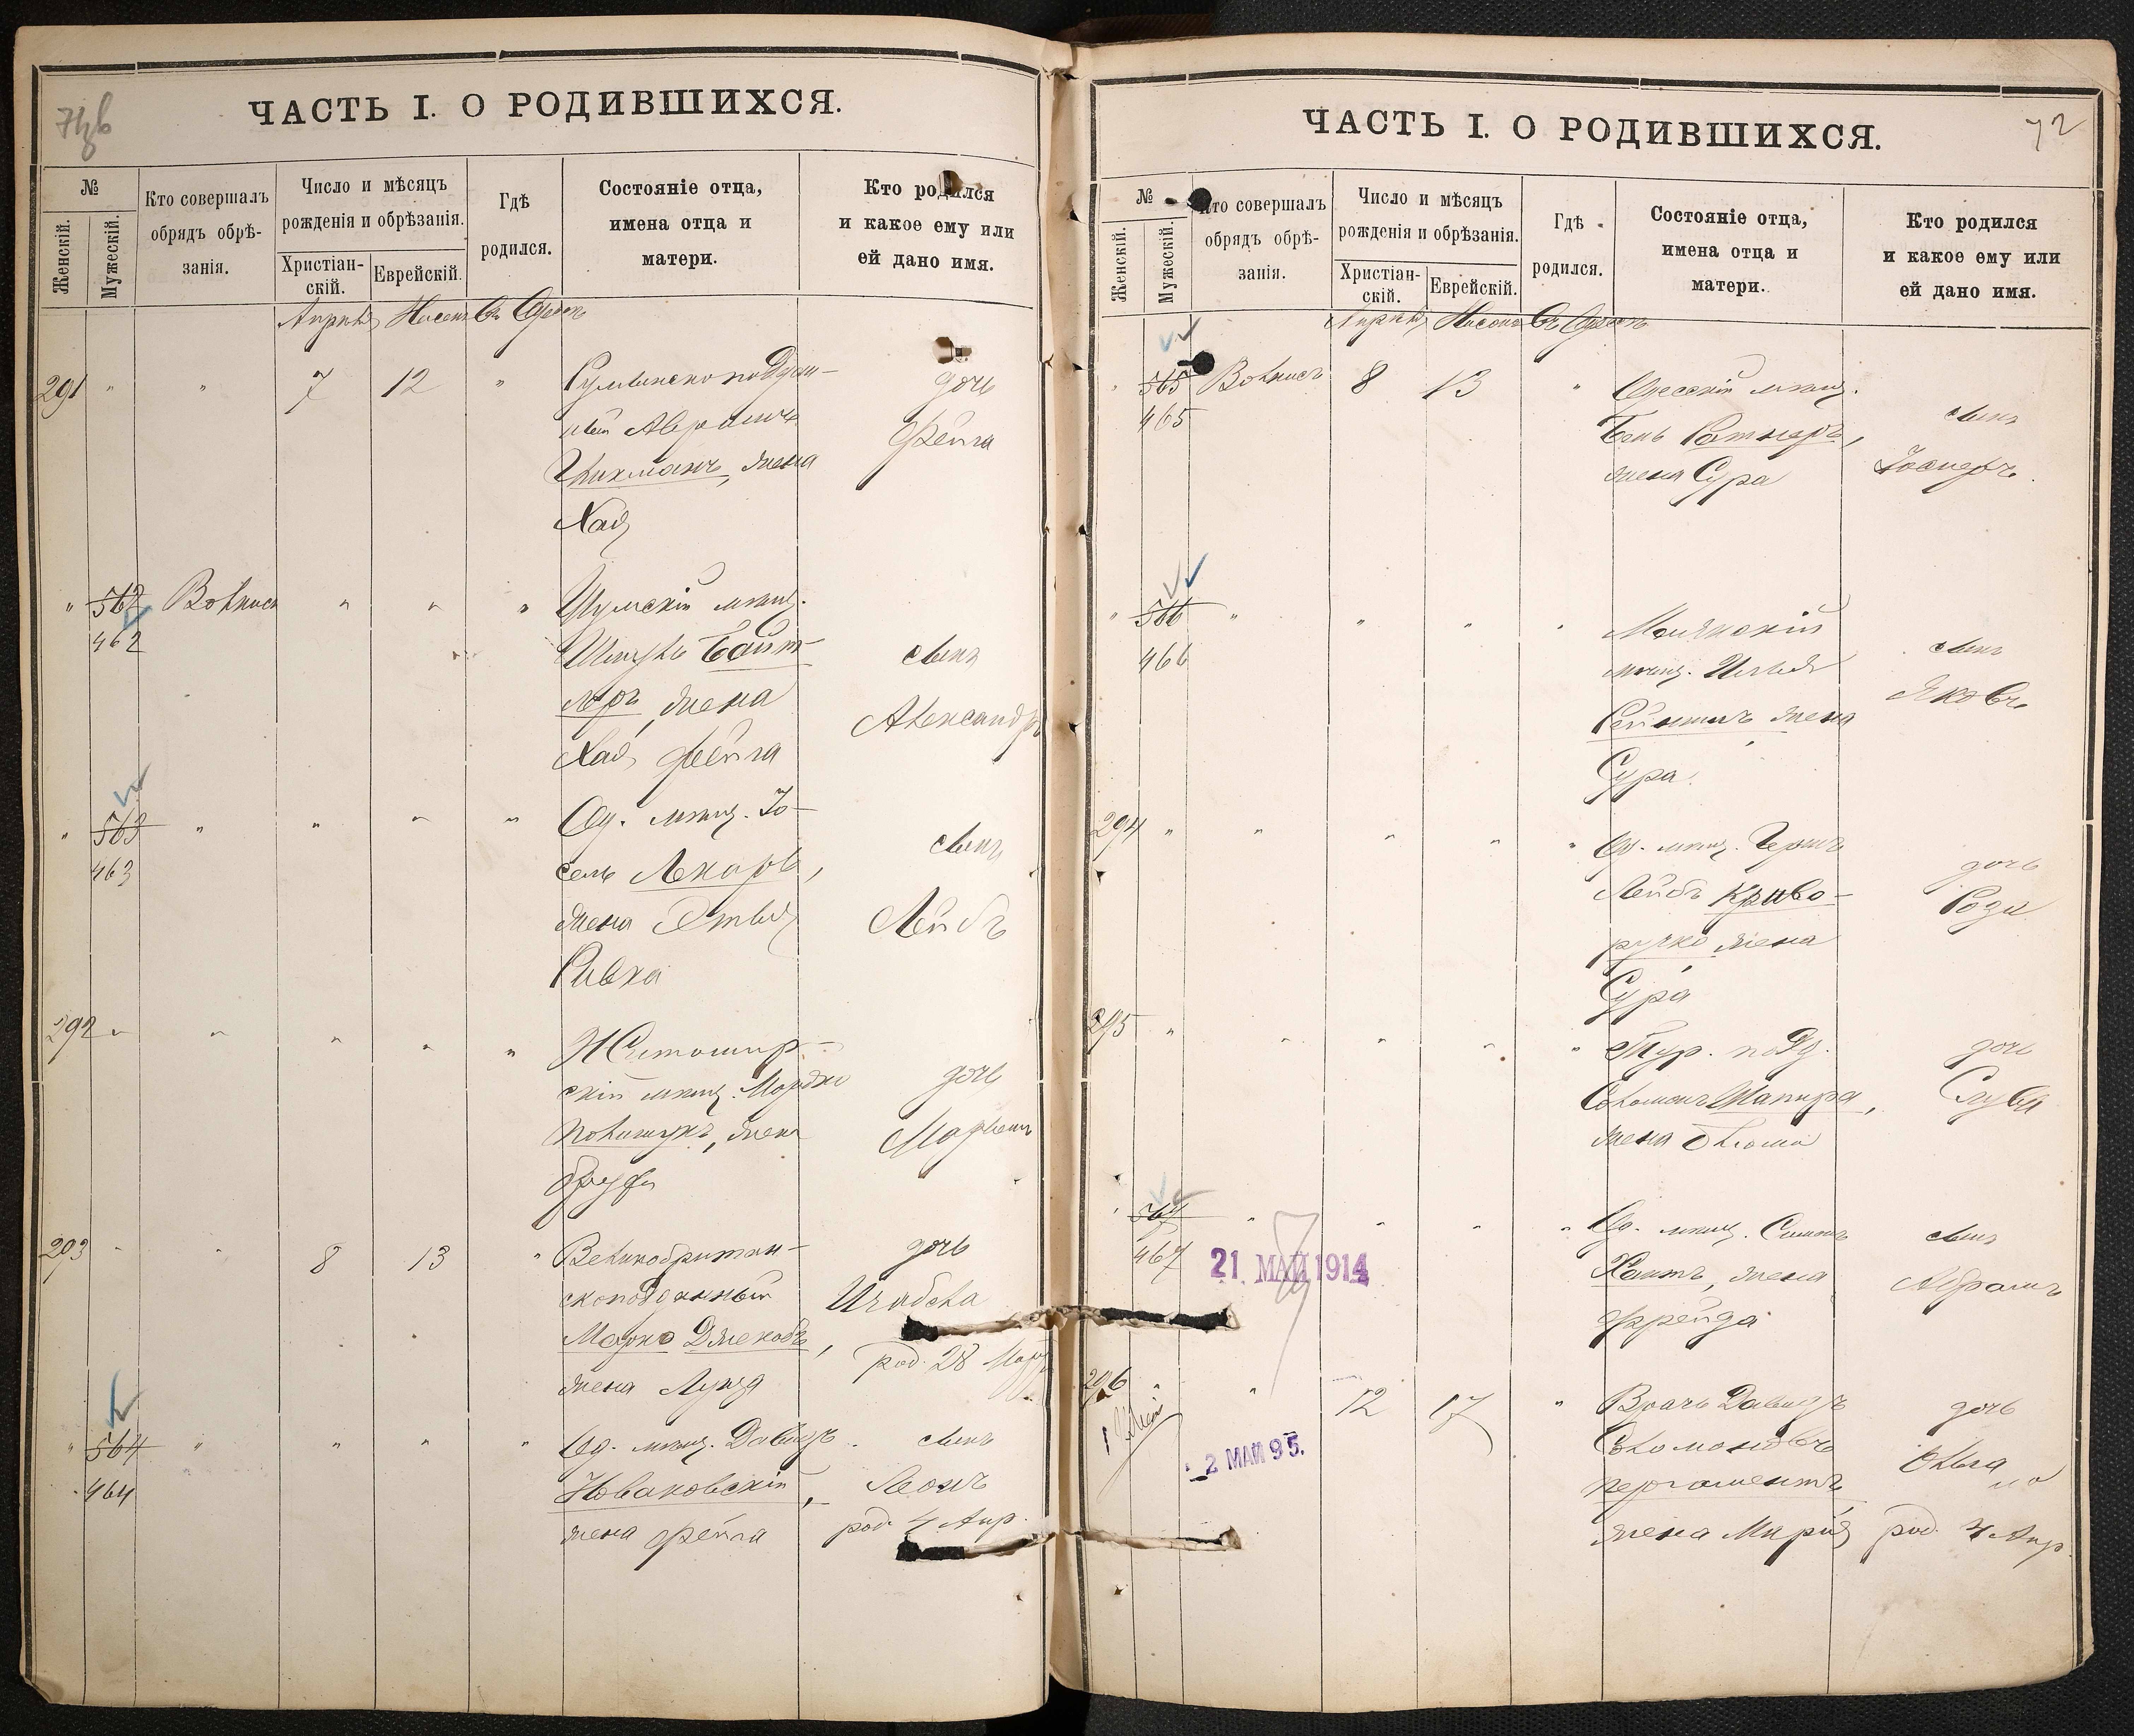 ЧАСТЬ I. О РОДИВШИХСЯ.
№
Женскій.
Мужескій.
Кто совершалъ
обрядъ обрѣ-
занія.
Число и мѣсяцъ
рожденія и обрѣзанія.
Христіан-
скій.
Еврейскій.
Гдѣ
родился.
Состояніе отца,
имена отца и
матери.
Кто родился
и какое ему или
ей дано имя.
Апрѣля Нисона Въ Одессѣ
291 " " 7 12 "
Румынскоподдан-
ный Абрамъ
жена
Хая
дочь
Фейга
" 562 Вольнисъ " " "
462
мѣщ.
Шмуль Байт-
леръ, жена
Хая Фейга
сынъ
Александръ
" 563 " " " "
463
Од. мѣщ. Іо-
сель Лекарь,
жена Этья
Ривка
сынъ
Лейбъ
292 " " " " "
Житомир-
скій мѣщ. Мордко
Полищукъ, жена
Фруфа
дочь
293 " " 8 13 "
Великобритан-
скоподданный
Марко Джекобъ,
жена Луиза
дочь
Изабела
род. 28 Марта
" 564 " " " "
464
Од. мѣщ. Давидъ
Новаковскій,
жена Фейга
сынъ
Леонъ
род. 4 Апр.
ЧАСТЬ I. О РОДИВШИХСЯ.
72
№
Женскій.
Мужескій.
Кто совершалъ
обрядъ обрѣ-
занія.
Число и мѣсяцъ
рожденія и обрѣзанія.
Христіан-
скій.
Еврейскій.
Гдѣ
родился.
Состояніе отца,
имена отца и
матери.
Кто родился
и какое ему или
ей дано имя.
Апрѣля Нисона Въ Одессѣ
" 565 Вольнисъ 8 13 "
465
Одесскій мѣщ.
Бень Ратнеръ,
жена Сура
сынъ
Іосифъ.
" 566 " " " "
466
Маякскій
мѣщ.
жена
Сура
сынъ
Яковъ
294 " " " " "
Од. мѣщ. Гершъ
Лейбъ Криво-
ручко жена
Сура
дочь
295 " " " " "
Тур. подд.
Соломонъ Шапира,
жена Блюма
дочь
" 567 " " " "
467
21 МАЙ 1914
Од. мѣщ. Симонъ
Хаитъ, жена
Фрейда
сынъ
Абрамъ
296 " " 12 17 "
2 МАЙ 95.
Врачъ Давидъ
Соломоновъ
Пергаментъ
жена Марія
дочь
Ольга
род. 4 Апр.